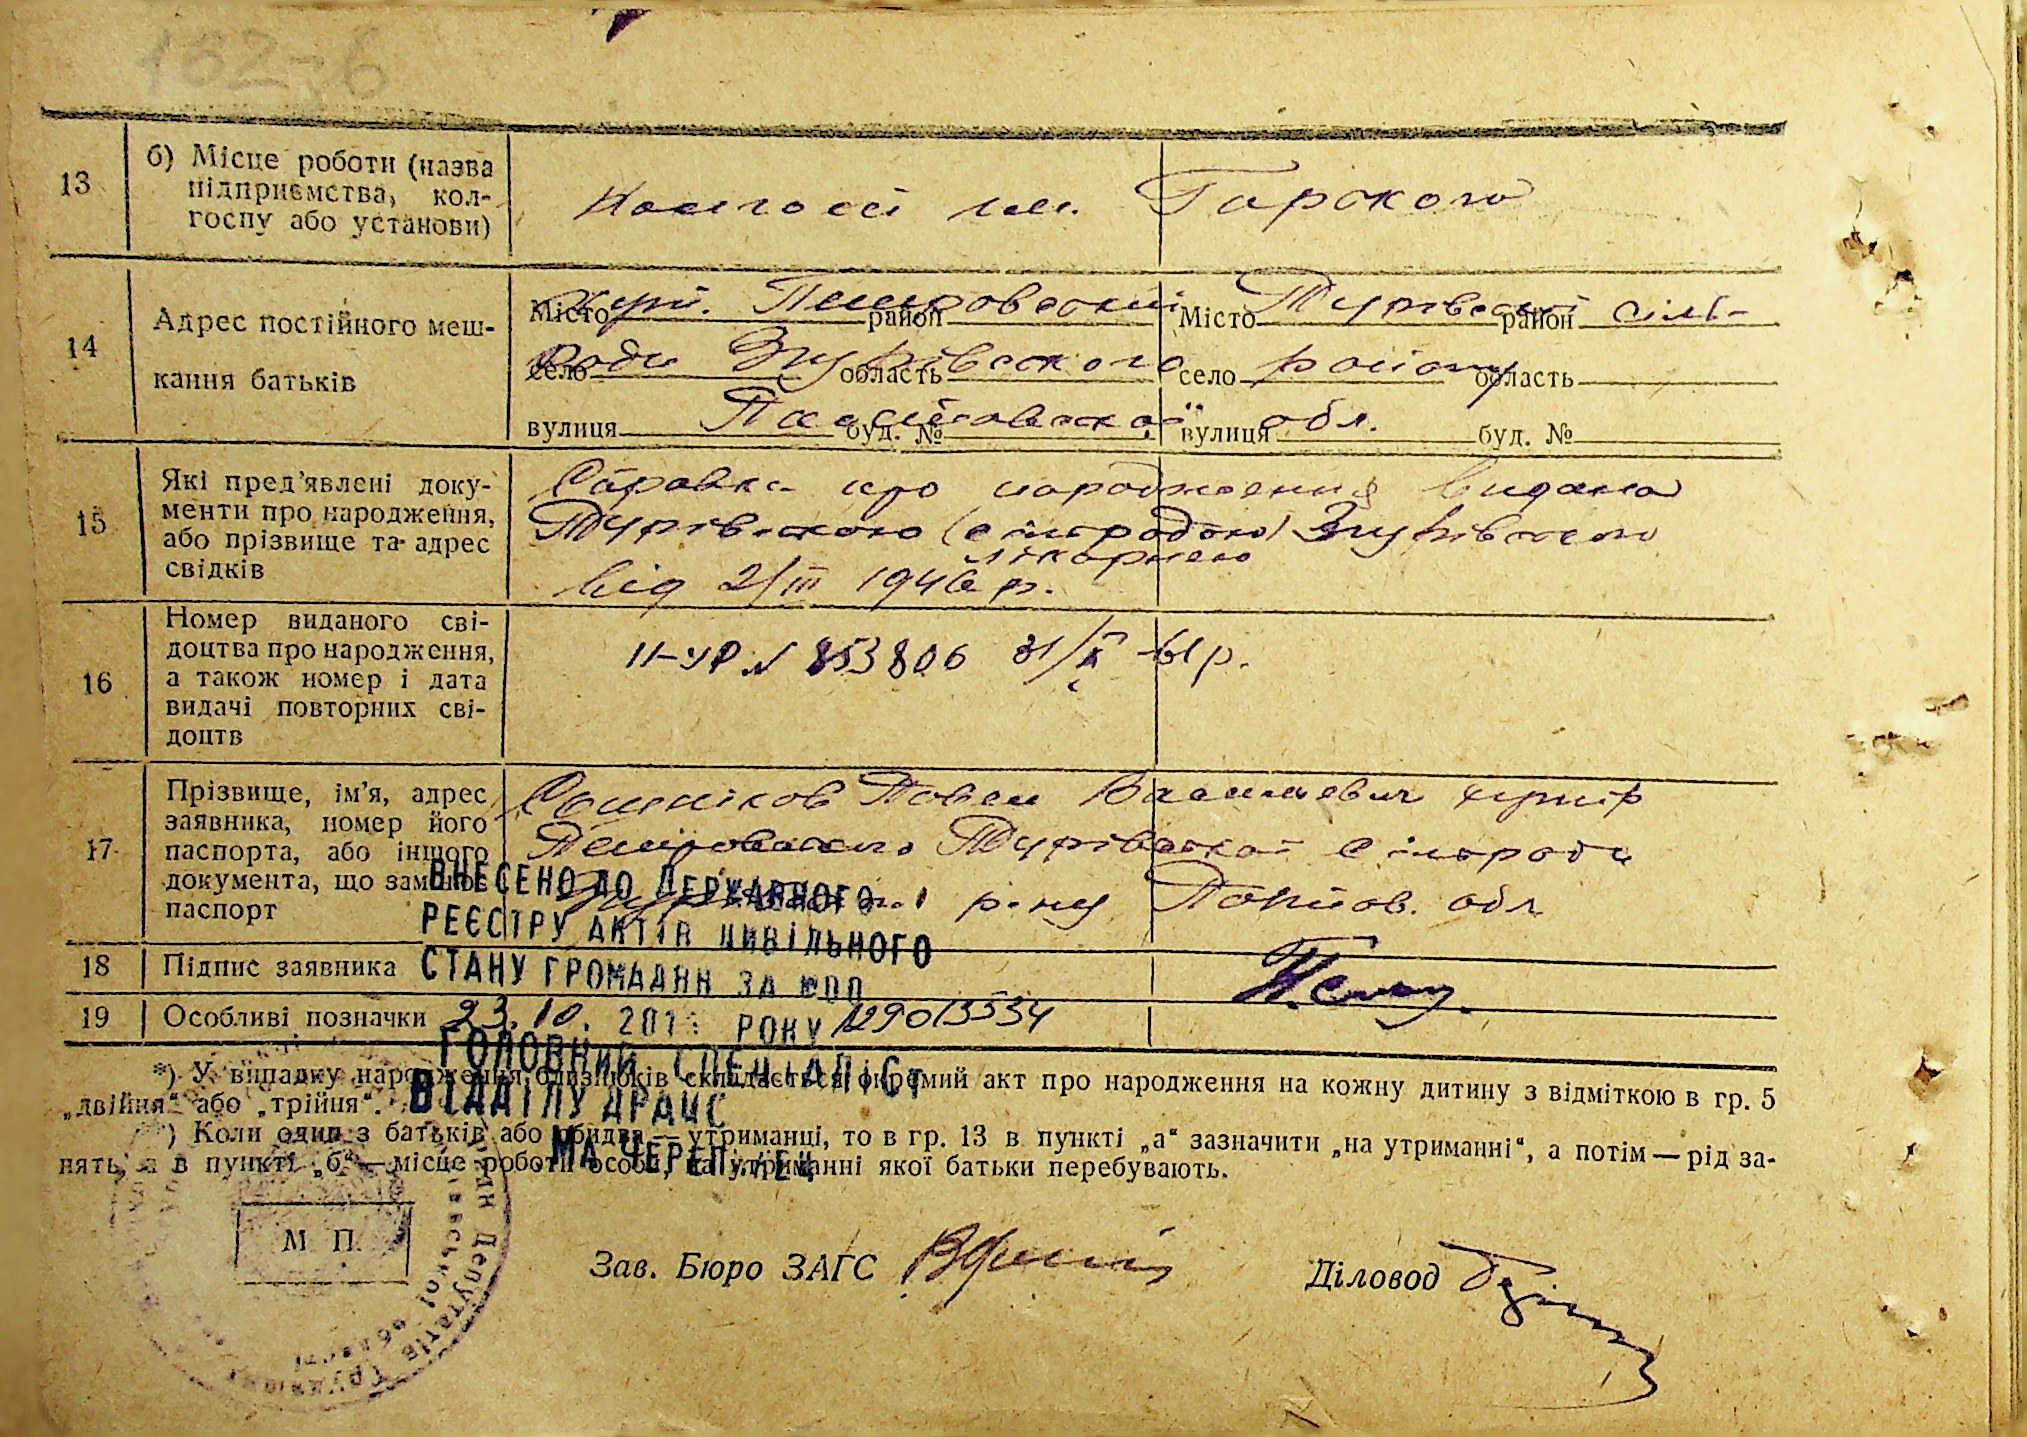 162-б
13
б) Місце роботи (назва
підприємства, кол-
госпу або установи)
Колгосп ім. Горького
14
Адрес постійного меш-
кання батьків
Місто район Місто район
село область село область
вулиця буд. № вулиця буд. №
хут. Петровський Турівської сіль-
ради Згурівського району
Полтавської обл.
15
Які пред'явлені доку-
менти про народження,
або прізвище та адрес
свідків
Справка про народження видана
Турівською (сільрадою) Згурівською
лікарнею
від 2/III 1946 р.
16
Номер виданого сві-
доцтва про народження,
а також номер і дата
видачі повторних сві-
доцтв
II-УР № 853806 31/X-61 р.
17
Прізвище, ім'я, адрес
заявника, номер його
паспорта, або іншого
документа, що замінює
паспорт
Павел Васильевич хутір
Турівської сільради
р-ну Полтав. обл.
18 Підпис заявника
19 Особливі позначки
ВНЕСЕНО ДО ДЕРЖАВНОГО
РЕЄСТРУ АКТІВ ЦИВІЛЬНОГО
СТАНУ ГРОМАДЯН ЗА
23.10. 201 РОКУ
ГОЛОВНИЙ СПЕЦІАЛІСТ
ВІДДІЛУ ДРАЦС
*) У випадку народження близнюків складається окремий акт про народження на кожну дитину з відміткою в гр. 5
„двійня“ або „трійня“.
) Коли один з батьків або обидва — утриманці, то в гр. 13 в пункті „а“ зазначити „на утриманні“, а потім — рід за-
нять, а в пункті „б“ — місце роботи особи, на утриманні якої батьки перебувають.
М П.
Депутатів Трудящих
області
Зав. Бюро ЗАГС
Діловод